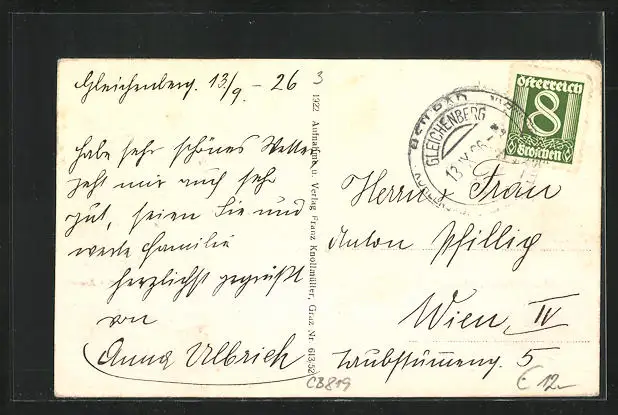 Gleichenberg. 13/9. - 26
3
Habe sehr schönes Wetter
geht mir auch sehr
gut, seien Sie und
werte Familie
herzlichst gegrüßt
von
Anna Ulbrich
1922 Aufnahme u. Verlag Franz Knollmüller, Graz Nr. 613/52
GLEICHENBERG
Österreich
8
Groschen
Herrn u Frau
Anton Pfillig
Wien, IV
5
CB819
€ 12-